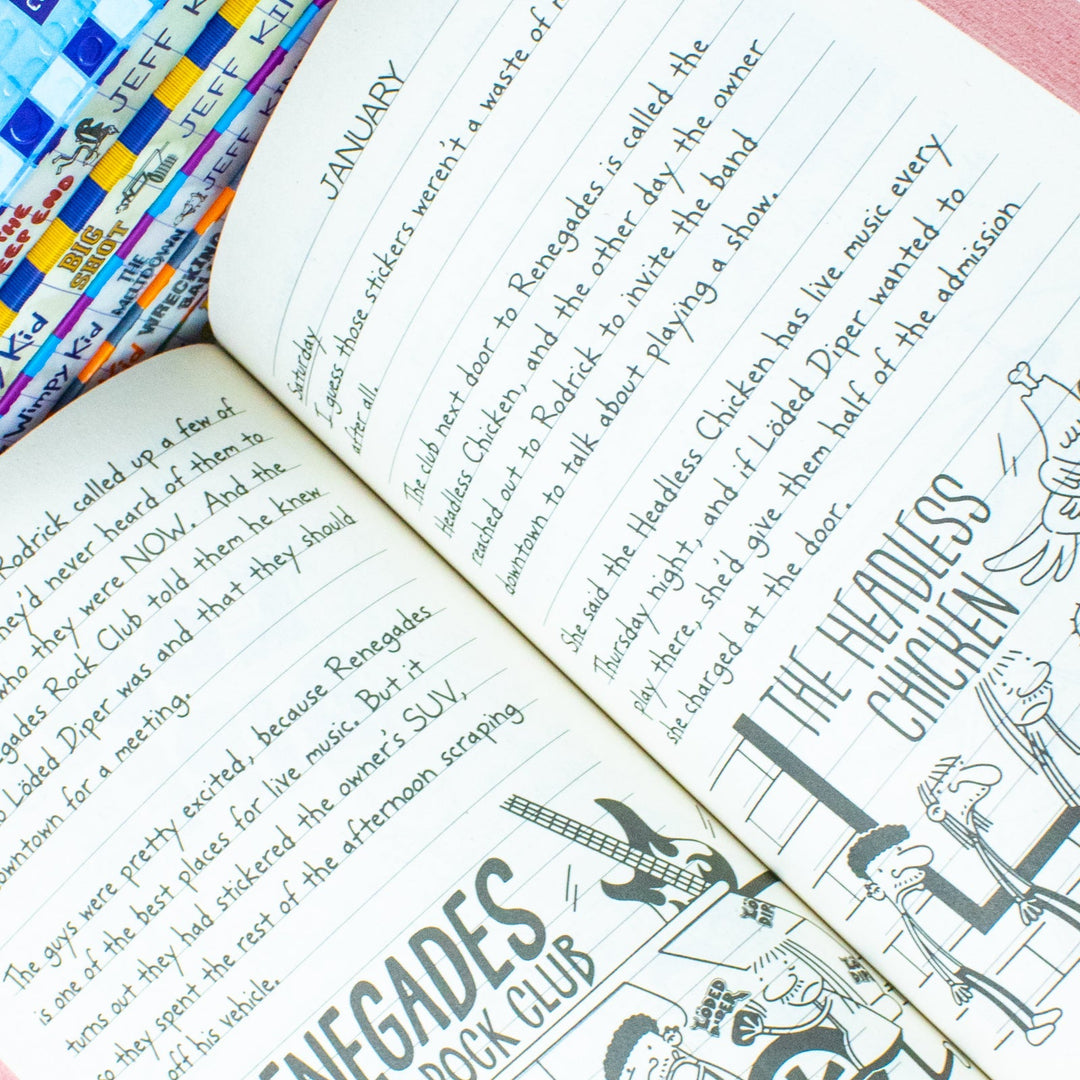 JEFF
JEFF
JEFF
THE
DEEP END
BIG
SHOT
THE
MELTDOWN
WRECKING
BALL
Kid
Wimpy Kid
Kid
Rodrick called up a few of
they'd never heard of them to
who they were NOW. And the
Rock Club told them he knew
Löded Diper was and that they should
downtown for a meeting.
The guys were pretty excited, because Renegades
is one of the best places for live music. But it
turns out they had stickered the owner's SUV,
so they spent the rest of the afternoon scraping
off his vehicle.
RENEGADES
ROCK CLUB
LÖDED
DIPER
JANUARY
Saturday
I guess those stickers weren't a waste of
after all.
The club next door to Renegades is called the
Headless Chicken, and the other day the owner
reached out to Rodrick to invite the band
downtown to talk about playing a show.
She said the Headless Chicken has live music every
Thursday night, and if Löded Diper wanted to
play there, she'd give them half of the admission
she charged at the door.
THE HEADLESS
CHICKEN